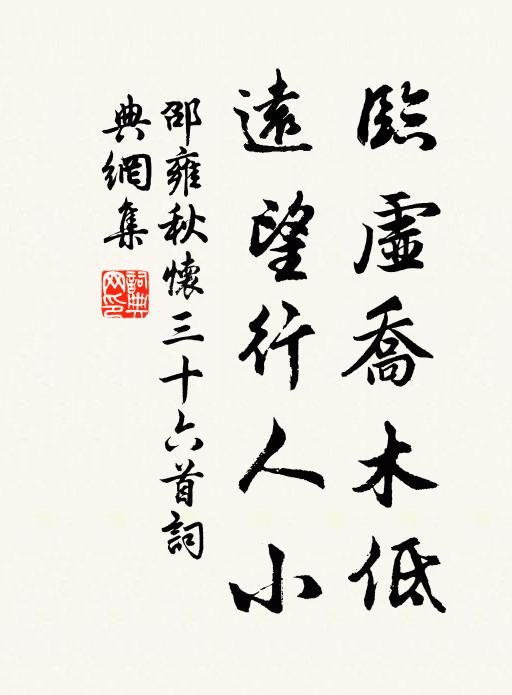 臨虛喬木低
遠望行人小
邵雍秋懷三十六首詞
典網集
詞典網印